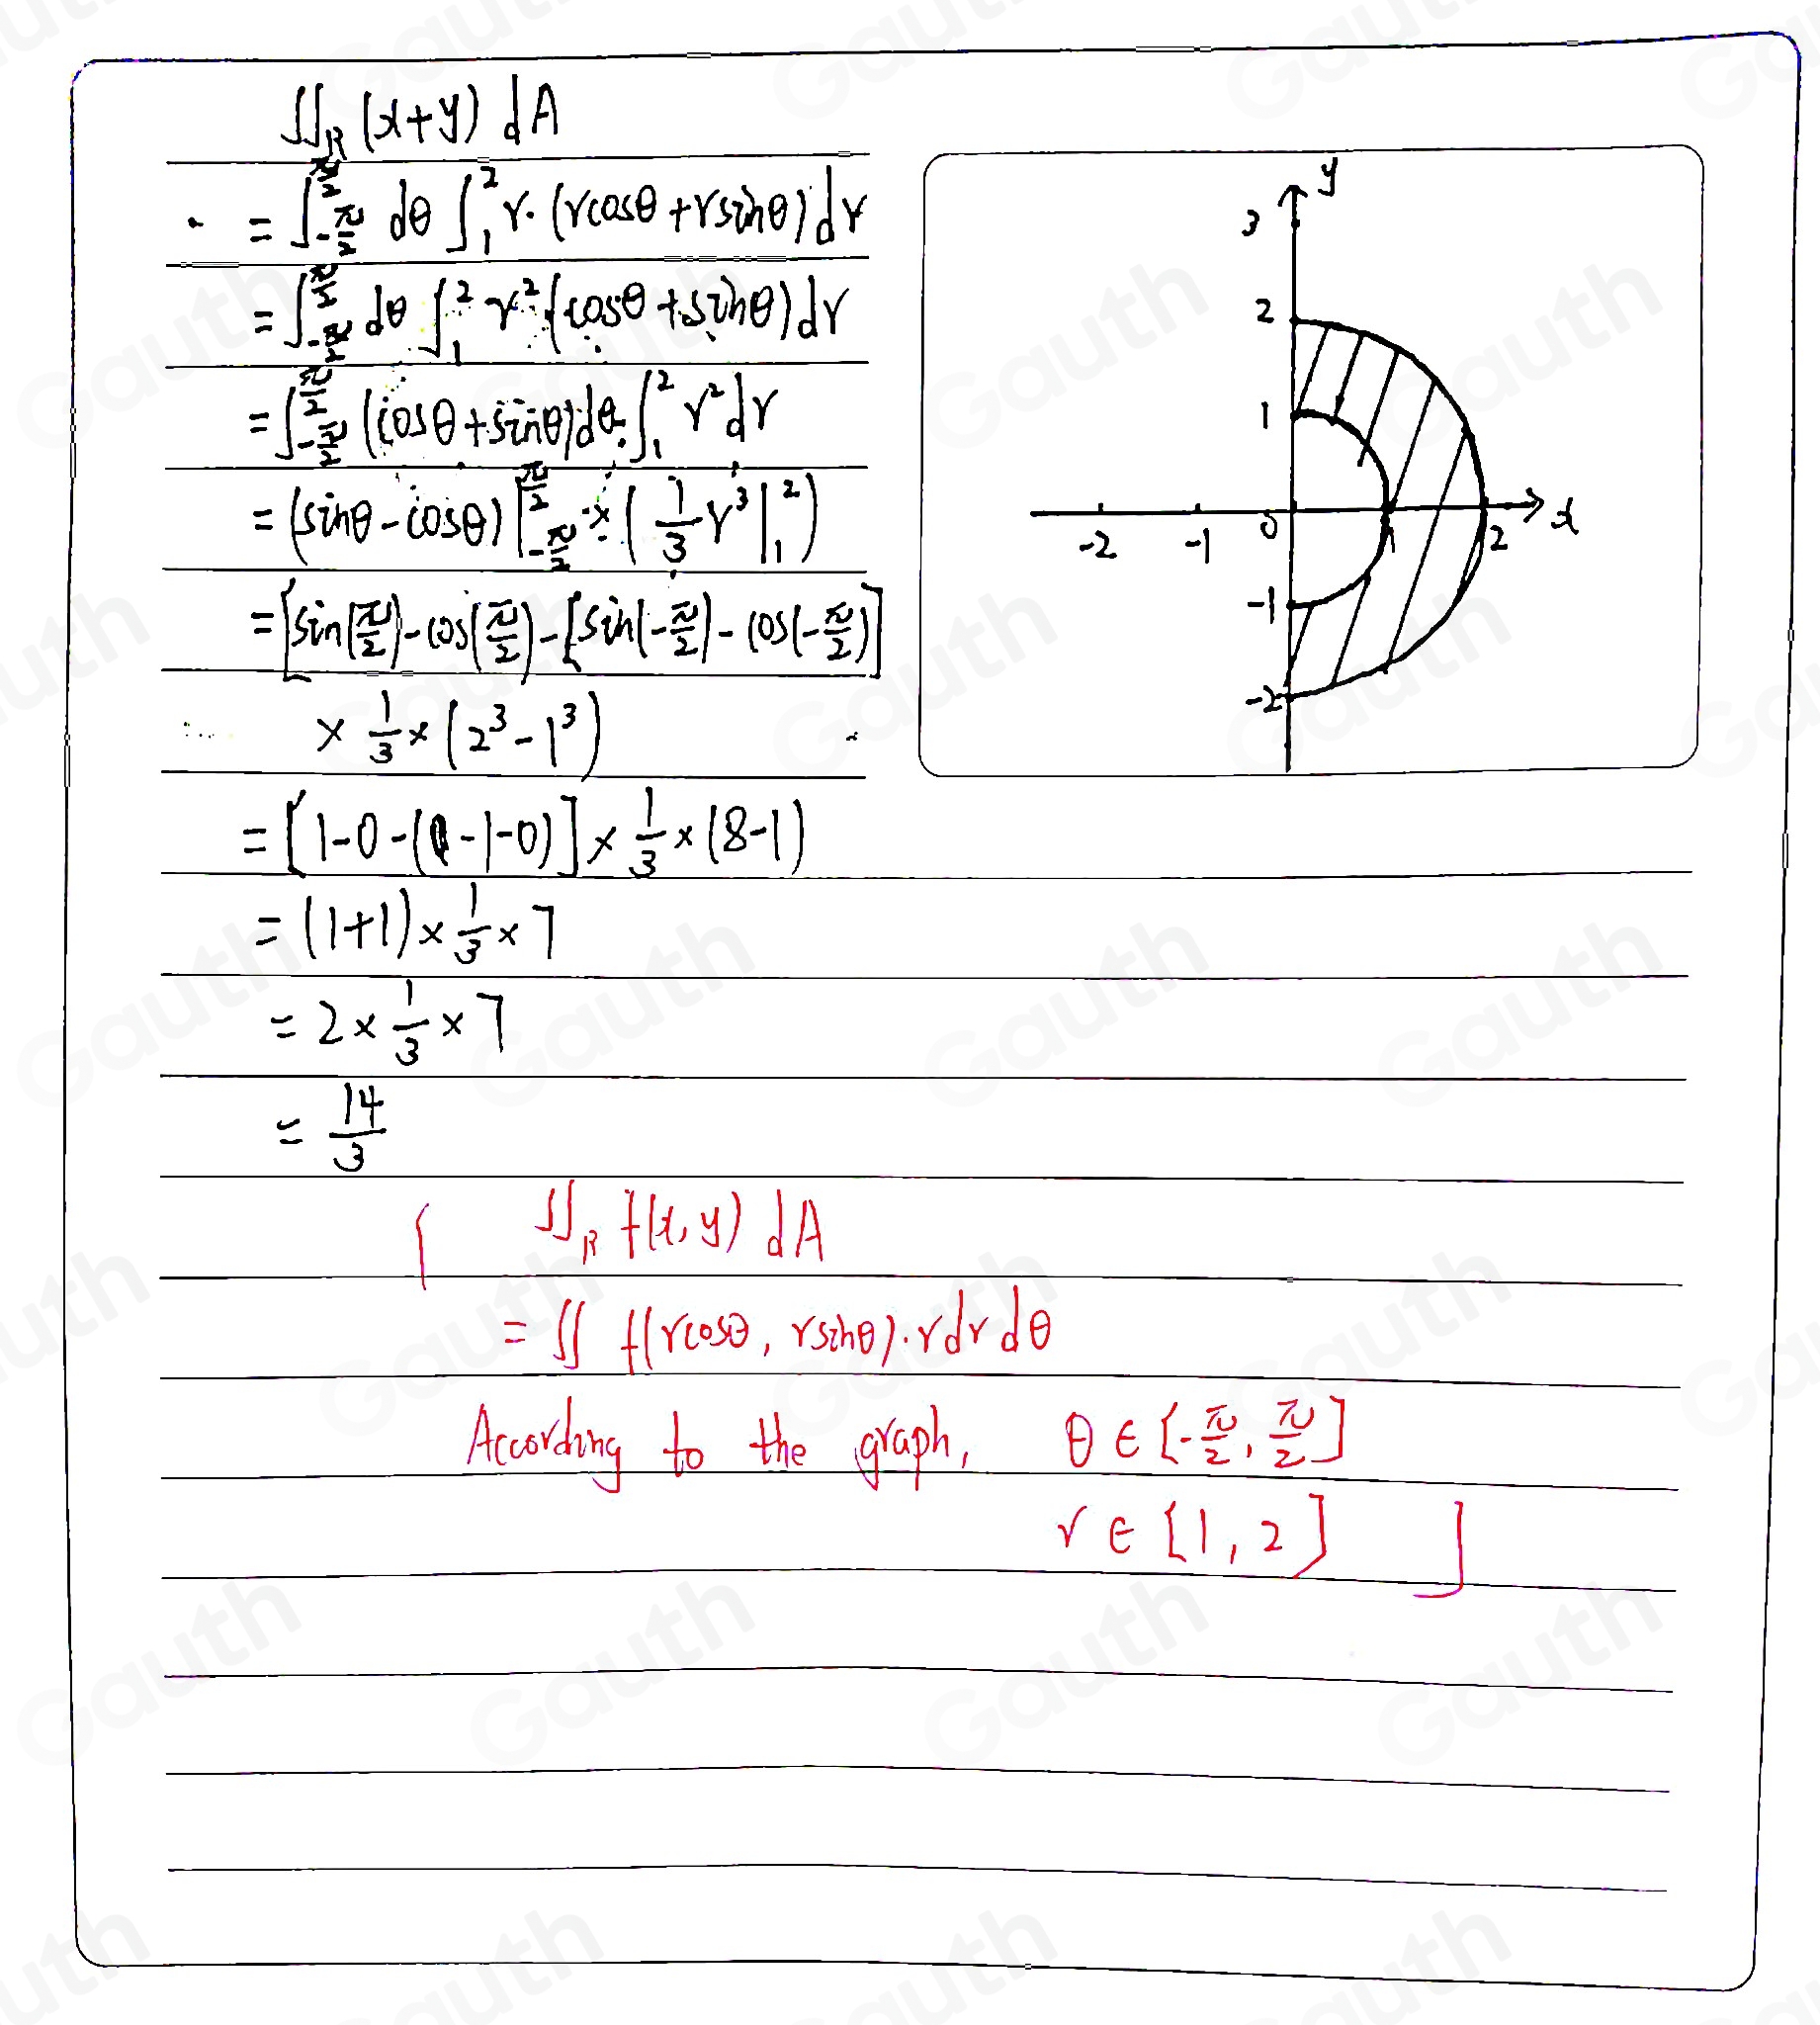 ∬_R (x+y) dA
= ∫_{-π/2}^{π/2} dθ ∫_1^2 r·(rcosθ+rsinθ)dr
= ∫_{-π/2}^{π/2} dθ ∫_1^2 r²(cosθ+sinθ)dr
= ∫_{-π/2}^{π/2} (cosθ+sinθ)dθ·∫_1^2 r²dr
= (sinθ-cosθ)|_{-π/2}^{π/2} × (1/3 r³|_1^2)
= [sin(π/2)-cos(π/2)-[sin(-π/2)-cos(-π/2)]
× 1/3 × (2³-1³)
= [1-0-(-1-0)] × 1/3 × (8-1)
= (1+1) × 1/3 × 7
= 2 × 1/3 × 7
= 14/3
y
3
2
1
-2 -1 0 1 2 x
-1
-2
[ ∬_R f(x,y) dA
= ∬ f(rcosθ, rsinθ)·rdrdθ
According to the graph, θ∈[-π/2, π/2]
r∈[1,2] ]
Gauth